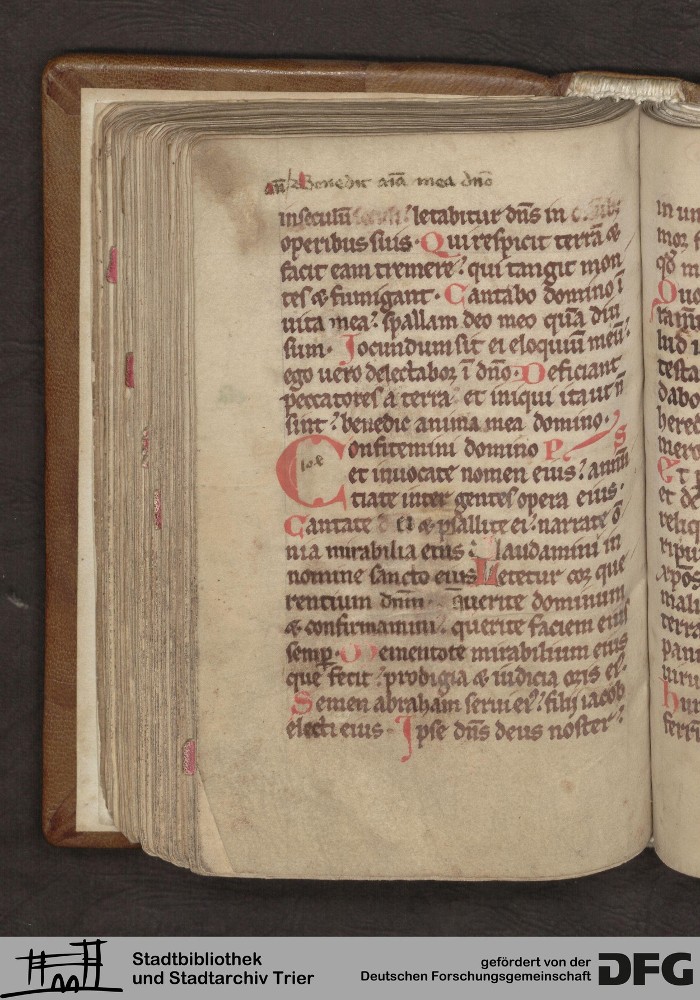 Benedic aīa mea dn̄o
in seculū letabitur dn̄s in
operibus suis. Qui respicit terrā &
facit eam tremere? qui tangit mon
tes & fumigant. Cantabo domino ī
uita mea? psallam deo meo quādiu
sum. Jocundum sit ei eloquiū meū?
ego uero delectaboꝛ ī dn̄o. Deficiant
peccatores a terra et iniqui ita ut n̄
sint? benedic anima mea domino.
Confitemini domino Ps
et inuocate nomen eius? annū
tiate inter gentes opera eius.
Cantate ei & psallite ei? narrate ō
nia mirabilia eius Laudamini in
nomine sancto eius Letetur coꝛ que
rentium dn̄m. Querite dominum
& confirmamini. querite faciem eius
semp̱. Mementote mirabilium eius
que fecit? prodigia & iudicia oris ei᷒.
Semen abraham serui ei᷒? filij iacob
electi eius. Ipse dn̄s deus noster?
in un
ferri
Stadtbibliothek
und Stadtarchiv Trier
gefördert von der
Deutschen Forschungsgemeinschaft
DFG